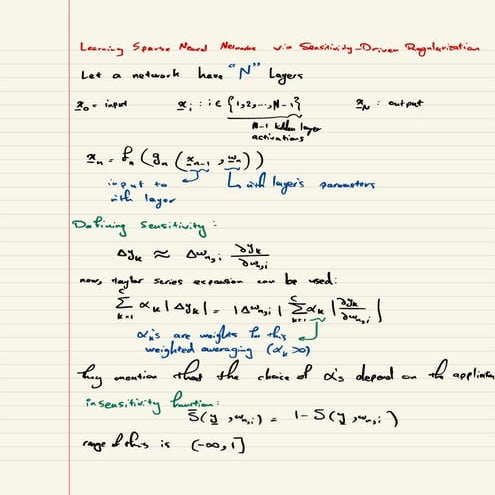 Learning Sparse Neural Networks via Sensitivity-Driven Regularization
Let a network have "N" layers
x₀ = input    xᵢ : i ∈ {1,2,...,N-1}    x_N : output
N-1 hidden layer
activations
xₙ = fₙ (gₙ (xₙ₋₁ , wₙ))
input to    nth layer's parameters
nth layer
Defining sensitivity:
Δyₖ ≈ Δwₙ,ᵢ ∂yₖ/∂wₙ,ᵢ
now, taylor series expansion can be used:
∑ₖ₌₁ᶜ αₖ |Δyₖ| = |Δwₙ,ᵢ| ∑ₖ₌₁ᶜ αₖ |∂yₖ/∂wₙ,ᵢ|
αₖ's are weights for this
weighted averaging (αₖ>0)
They mention that the choice of α's depend on the application
insensitivity function:
S̄(y, wₙ,ᵢ) = 1 - S(y, wₙ,ᵢ)
range of this is (-∞, 1]